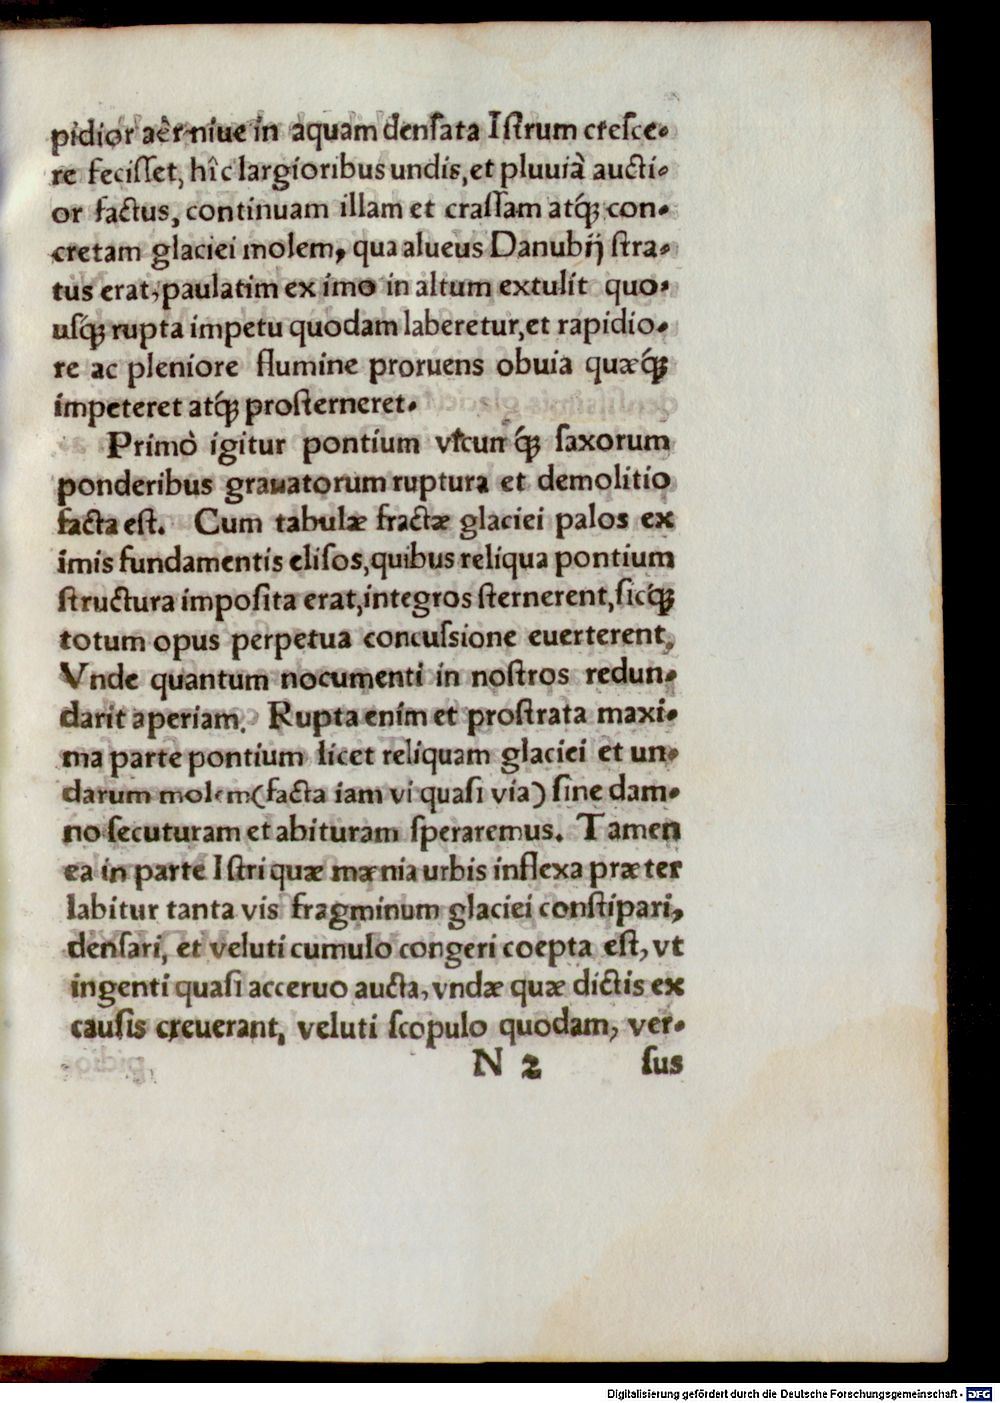 pidior aêr niue in aquam densata Istrum cresce-
re fecisset, hîc largioribus undis, et pluuiâ aucti-
or factus, continuam illam et crassam atq́; con-
cretam glaciei molem, qua alueus Danubij stra-
tus erat, paulatim ex imo in altum extulit quo-
usq́; rupta impetu quodam laberetur, et rapidio-
re ac pleniore flumine proruens obuia quæq́;
impeteret atq́; prosterneret.
Primò igitur pontium vtcunq́; saxorum
ponderibus grauatorum ruptura et demolitio
facta est. Cum tabulæ fractæ glaciei palos ex
imis fundamentis elisos, quibus reliqua pontium
structura imposita erat, integros sternerent, sicq́;
totum opus perpetua concussione euerterent,
Vnde quantum nocumenti in nostros redun-
darit aperiam. Rupta enim et prostrata maxi-
ma parte pontium licet reliquam glaciei et un-
darum molem (facta iam vi quasi via) sine dam-
no secuturam et abituram speraremus. Tamen
ea in parte Istri quæ mænia urbis inflexa præter
labitur tanta vis fragminum glaciei constipari,
densari, et veluti cumulo congeri coepta est, vt
ingenti quasi acceruo aucta, vndæ quæ dictis ex
causis creuerant, veluti scopulo quodam, ver-
N 2 sus
Digitalisierung gefördert durch die Deutsche Forschungsgemeinschaft - DFG